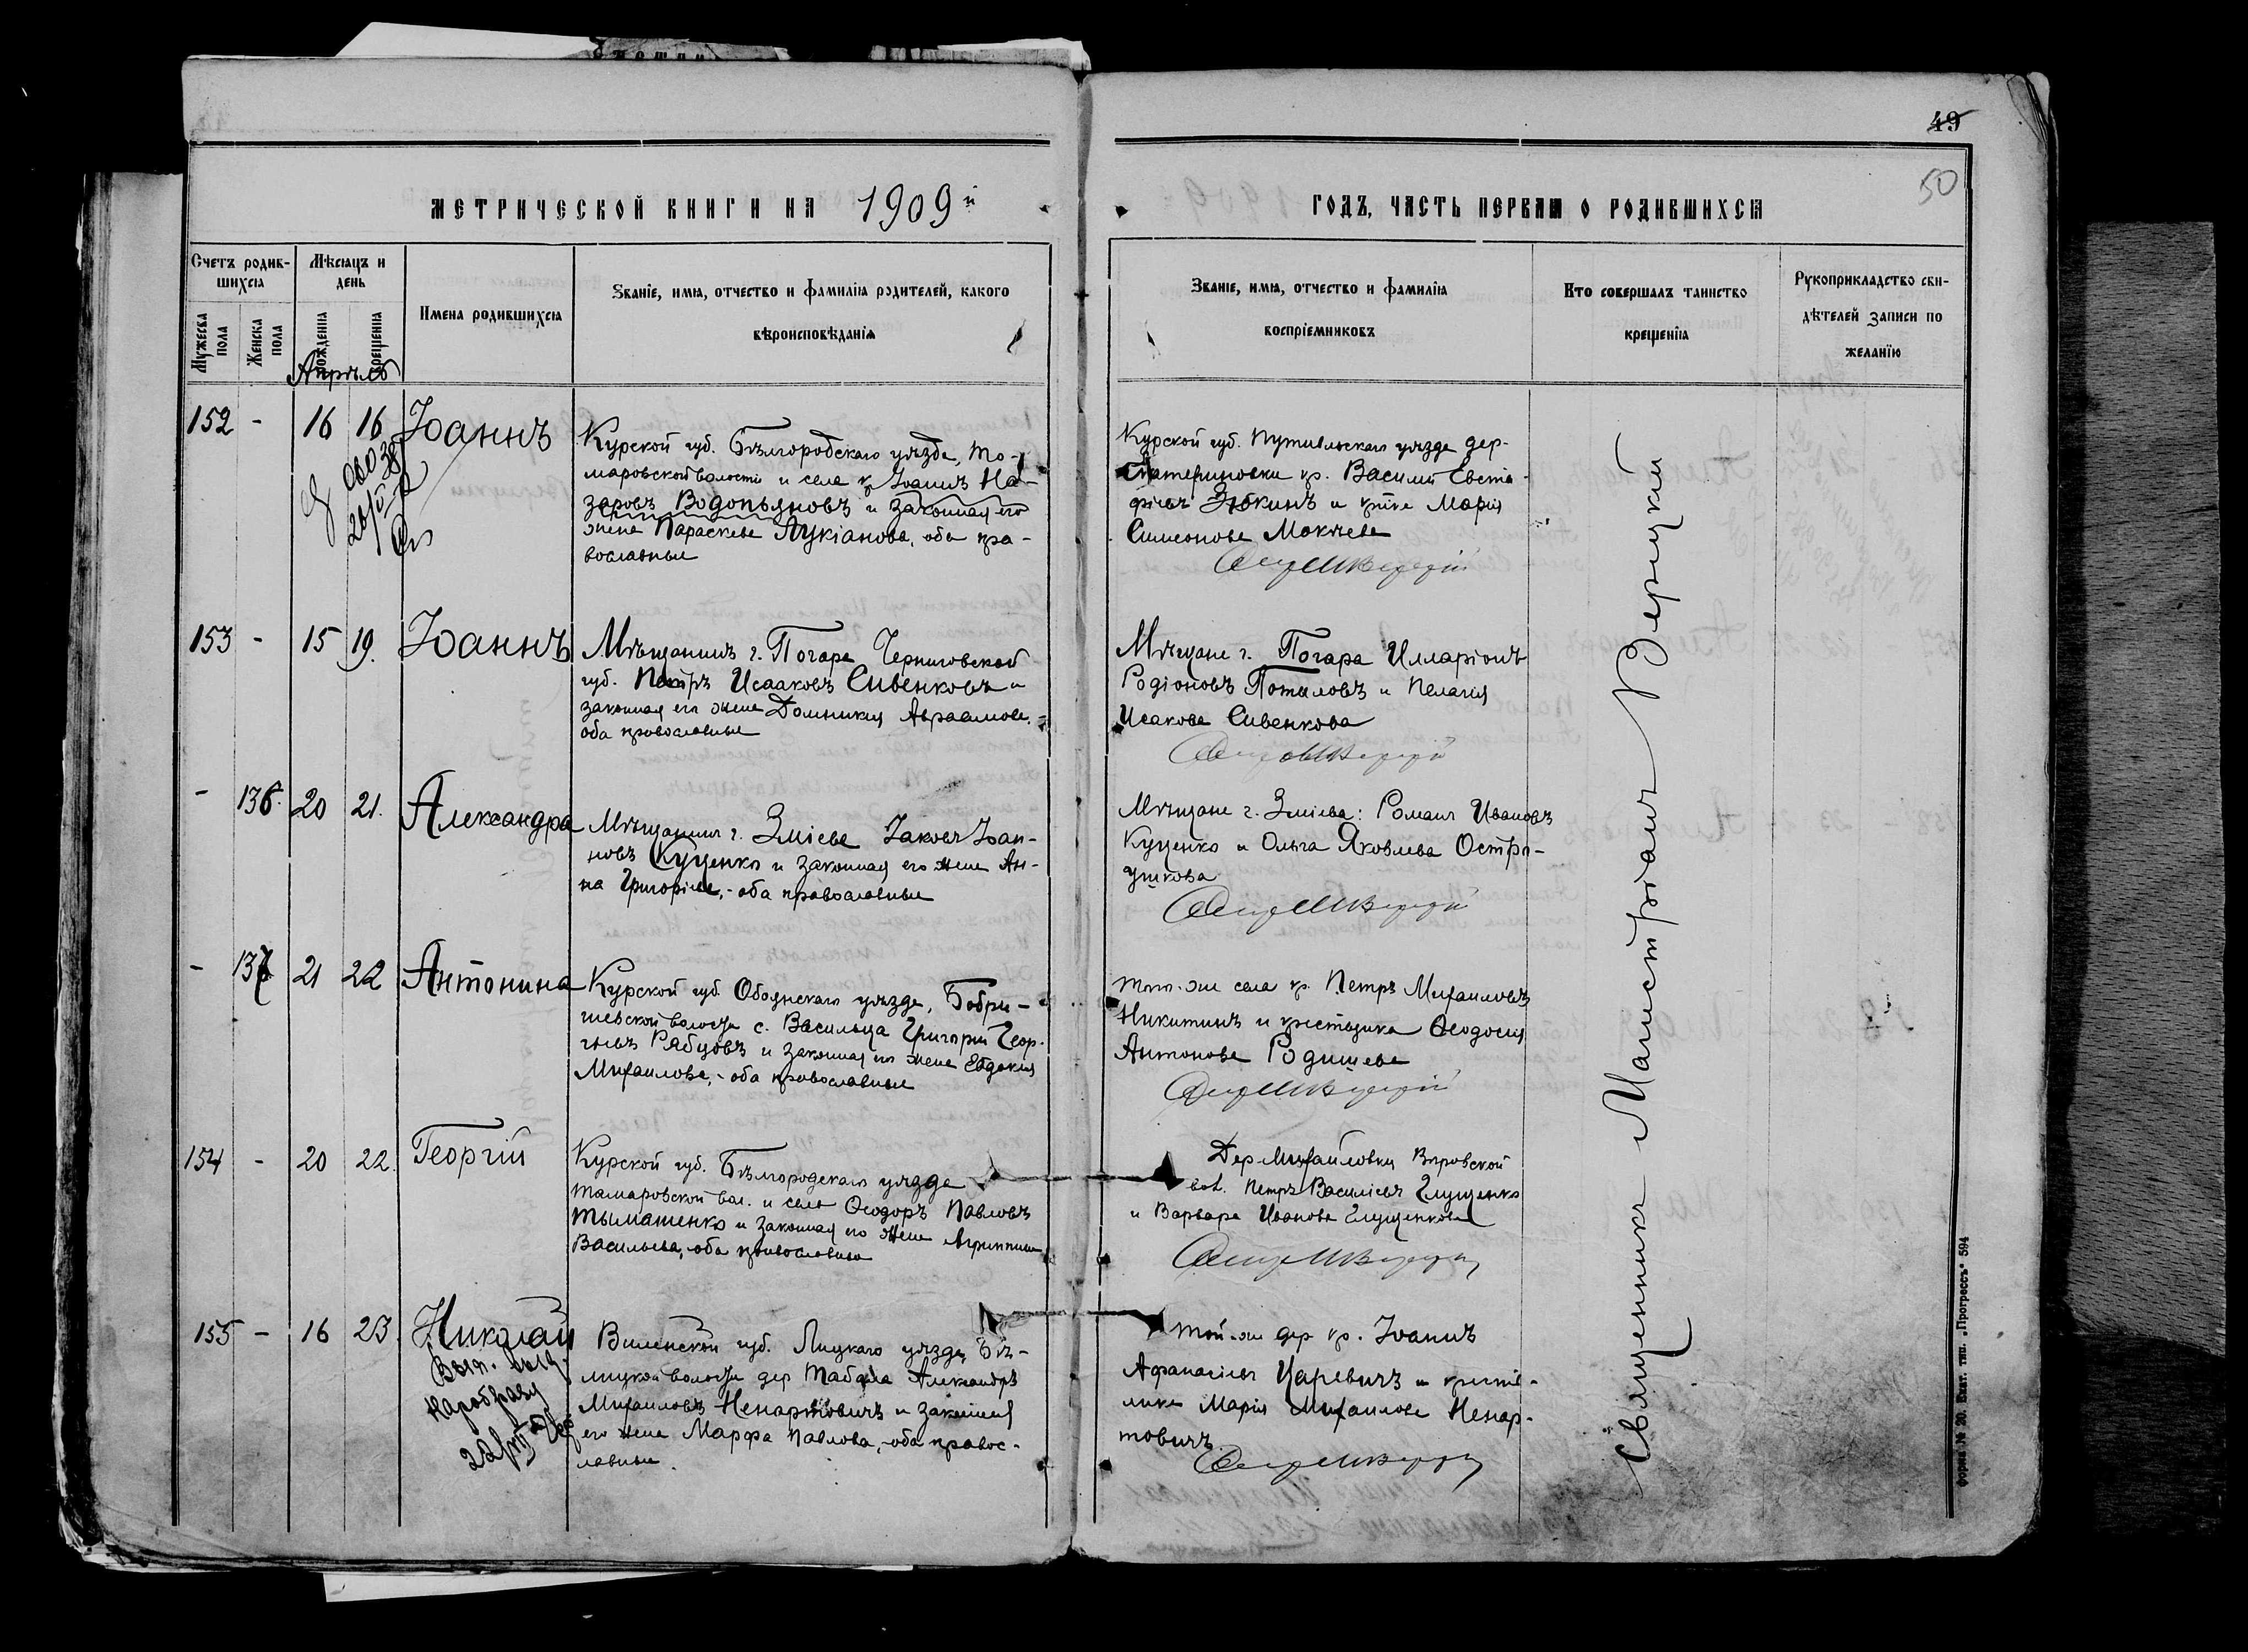 49
50
МЕТРИЧЕСКОЙ КНИГИ НА 1909й
ГОДЪ, ЧАСТЬ ПЕРВАЯ О РОДИВШИХСЯ
Счетъ родив-
шихся
Мужеска пола
Женска пола
Мѣсяцъ и
день
рожденія
крещенія
Имена родившихся
Званіе, имя, отчество и фамилія родителей, какого
вѣроисповѣданія
Званіе, имя, отчество и фамилія
воспріемниковъ
Кто совершалъ таинство
крещенія
Рукоприкладство сви-
дѣтелей записи по
желанію
Апрѣль
152 - 16 16 Іоаннъ
Курской губ. Бѣлгородскаго уѣзда, То-
маровской волости и села кр Іоаннъ На-
заровъ Водопьяновъ и законная его
жена Параскева Лукіанова, оба пра-
вославные
Курской губ. Путивльскаго уѣзда дер-
кр. Василій Евста-
фіевъ Зюкинъ и Марія
Симеонова Мокѣева
153 - 15 19. Іоаннъ
Мѣщанинъ г. Погара Черниговской
губ. Петръ Исааковъ Сивенковъ и
законная его жена Домникія Авраамова,
оба православные
Мѣщане г. Погара Илларіонъ
Родіоновъ Потыловъ и Пелагія
Исакова Сивенкова
- 136. 20 21. Александра
Мѣщанинъ г. Зміева Іаковъ Іоан-
новъ Куценко и законная его жена Ан-
на Григоріева,- оба православные
Мѣщане г. Зміева: Романъ Ивановъ
Куценко и Ольга Яковлева Остро-
ушкова
- 137 21 22 Антонина
Курской губ. Обоянскаго уѣзда, Бобры-
шевской волости с. Васильца Григорій Геор-
гіевъ Рябцовъ и законная его жена Евдокія
Михаилова,- оба православные
того-же села кр. Петръ Михаиловъ
Никитинъ и Ѳеодосія
Антонова Родишева
154 - 20 22. Георгій
Курской губ. Бѣлгородскаго уѣзда
Тамаровской вол. и села Ѳеодоръ Павловъ
Тымашенко и законная его жена Агриппина
Васильева, оба православные
Дер Михайловки
вол. Петръ Василіевъ Глущенко
и Варвара Иванова Глущенкова
155 - 16 23. Николай
22/VII
Виленской губ. Лидскаго уѣзда, Бѣ-
лицкой волости дер Табала Александръ
Михаиловъ Ненартовичъ и законная
его жена Марфа Павлова,-оба правос-
лавные.
той-же дер кр. Іоаннъ
Афанасіевъ Царевичъ и крестья-
нка Марія Михаилова Ненар-
товичъ.
Священникъ Мамистріанъ Вертуцкій
Форма № 20. Екат. тип. „Прогрессъ“ 594